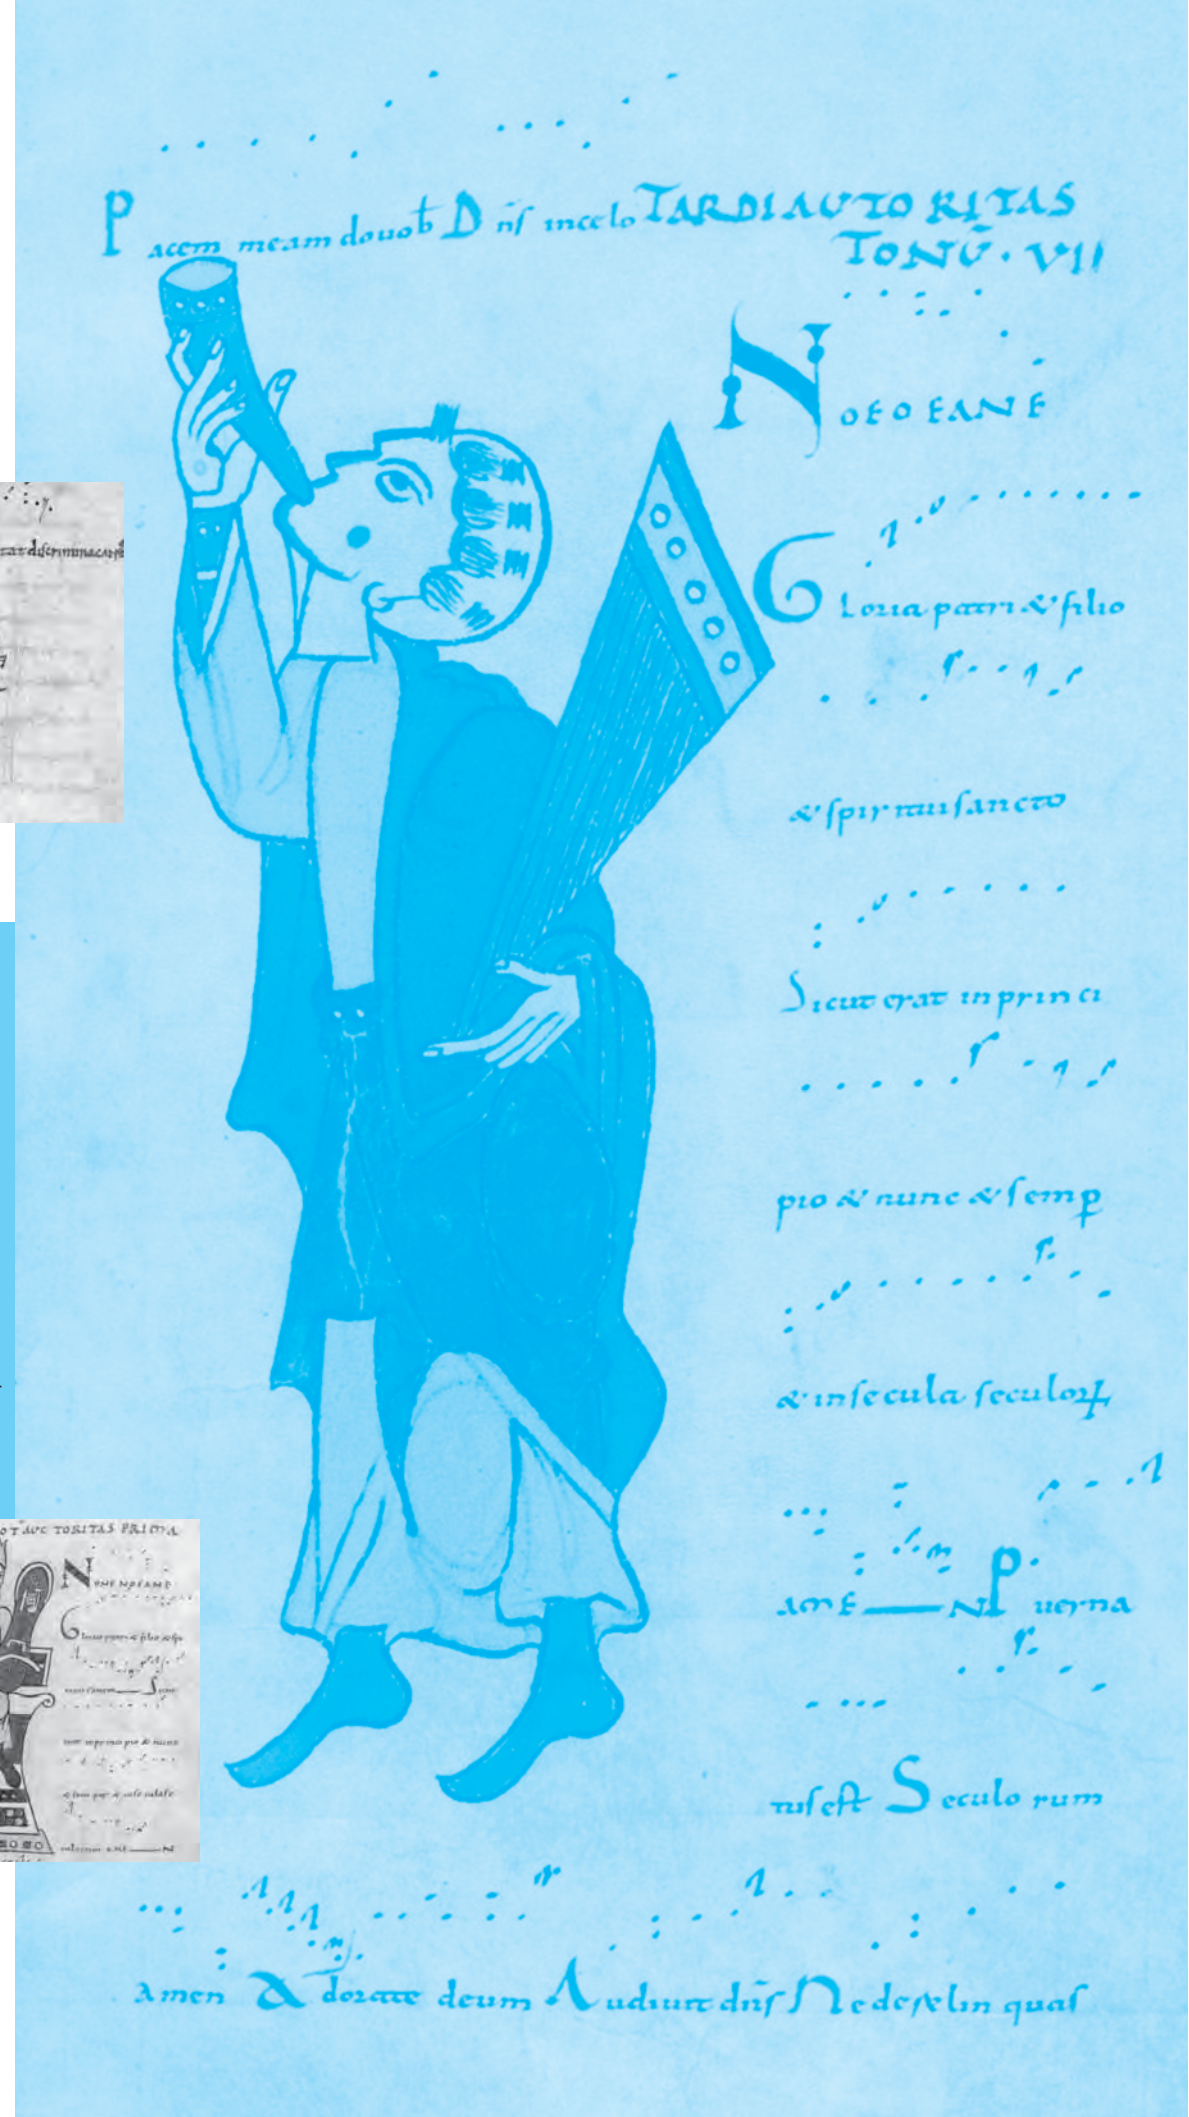 Pacem meam do uob Dñs in celo TARDI AUTORITAS
TONŪ · VII
NOEOEANE
Gloria patri & filio
& spiritui sancto
Sicut erat in princi
pio & nunc & semp
& in secula seculoꝝ
amE—N Puer na
tus est Seculorum
Amen Adorate deum Audiuit dñs Ne derelinquas
TORITAS PRIMA
NONENOEANE
Gloria patri & filio & spi